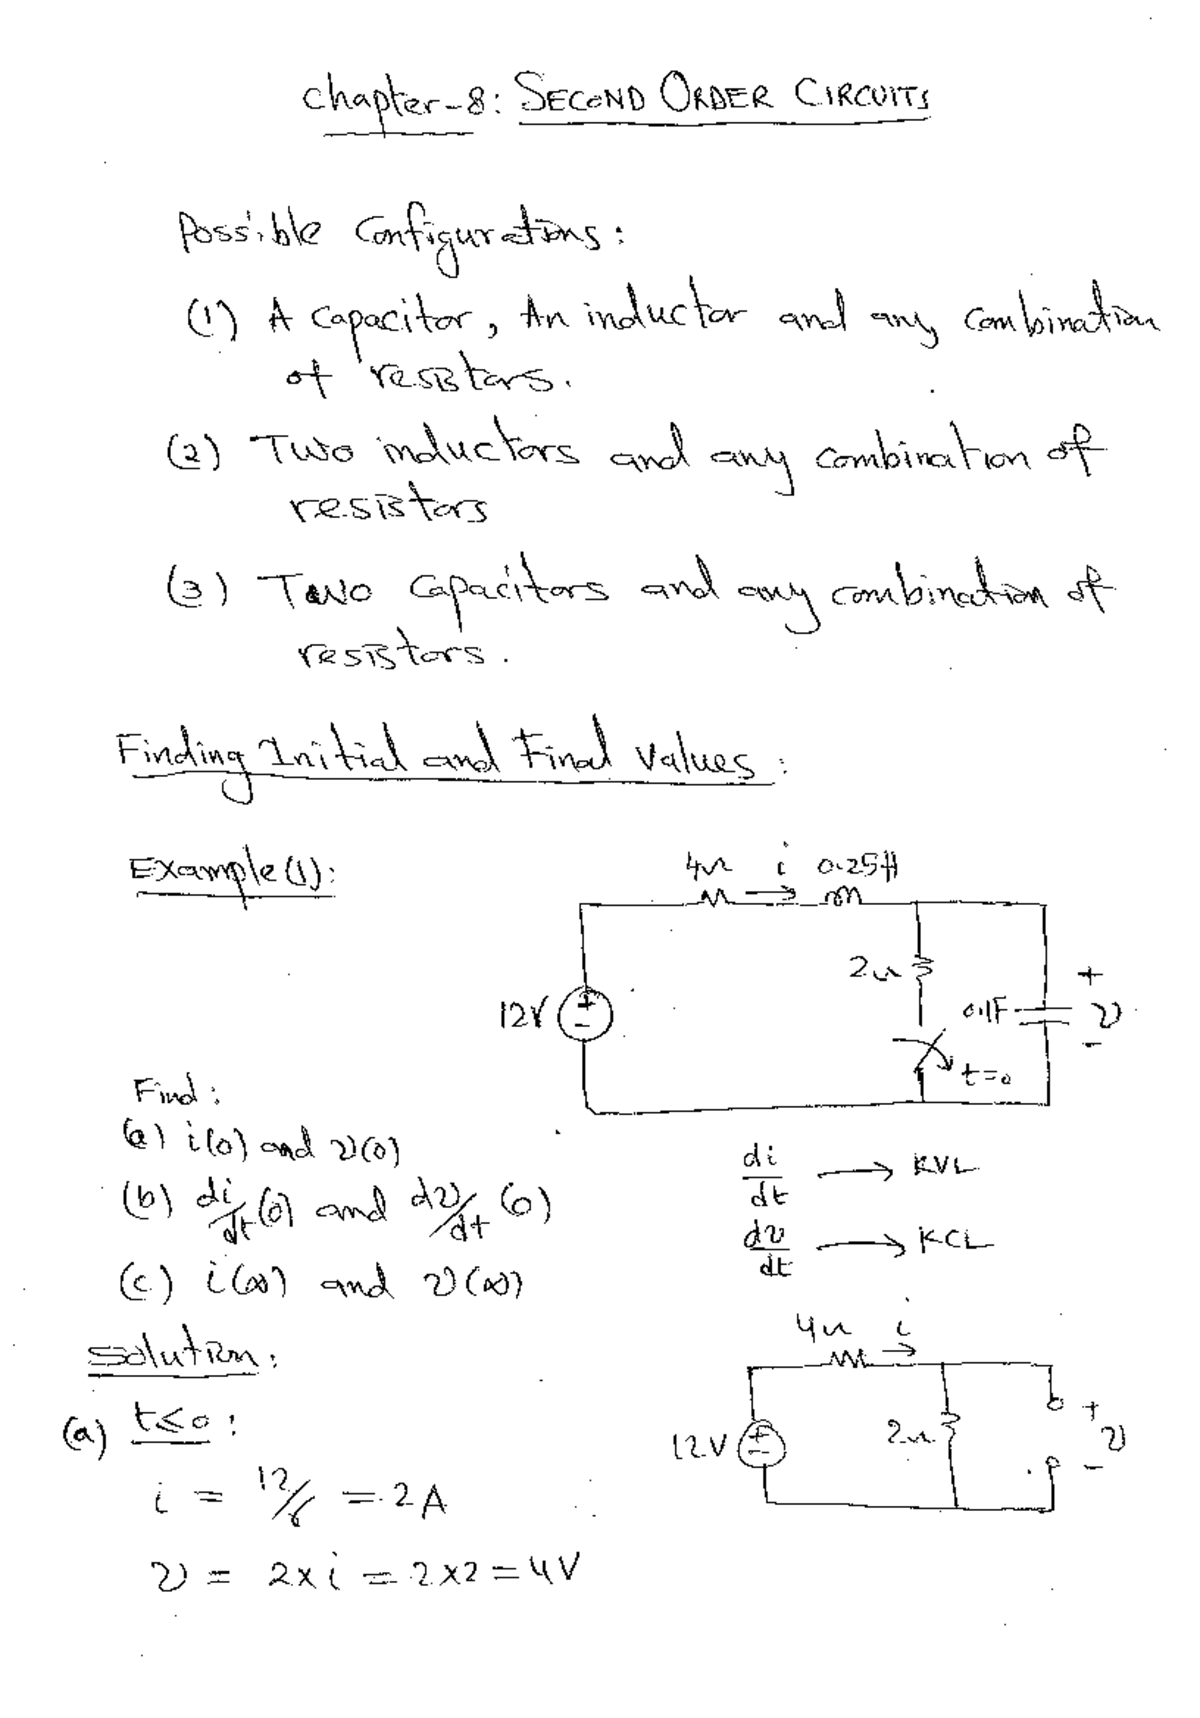 Chapter-8: SECOND ORDER CIRCUITS
Possible Configurations:
(1) A Capacitor, An inductor and any combination
of resistors.
(2) Two inductors and any combination of
resistors
(3) Two Capacitors and any combination of
resistors.
Finding Initial and Final Values:
Example (1):
4Ω i 0.25H
2Ω
12V
+
-
0.1F
+
v
-
t=0
Find:
(a) i(0) and v(0)
(b) di/dt (0) and dv/dt (0)
(c) i(∞) and v(∞)
di/dt → KVL
dv/dt → KCL
Solution:
(a) t≤0:
i = 12/6 = 2A
v = 2×i = 2×2 = 4V
4Ω i
12V
+
-
2Ω
+
v
-